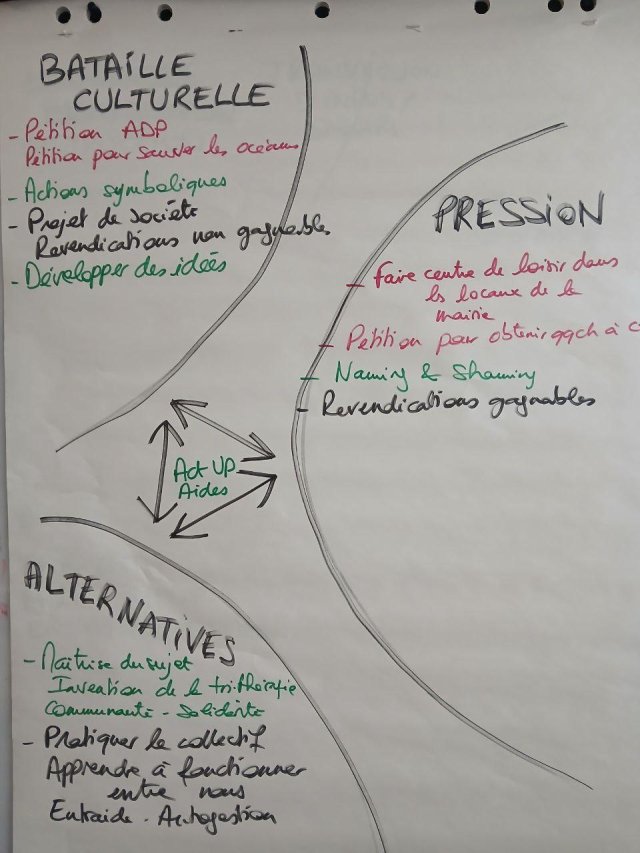 BATAILLE
CULTURELLE
- Pétition ADP
Pétition pour sauver les océans
- Actions symboliques
- Projet de société
Revendications non gagnables
- Développer des idées
PRESSION
- Faire centre de loisir dans
les locaux de la
mairie
- Pétition pour obtenir qqch à
- Naming & Shaming
- Revendications gagnables
Act UP
Aides
ALTERNATIVES
- Maîtrise du sujet
Invention de la trithérapie
Communauté - Solidarité
- Pratiquer le collectif
Apprendre à fonctionner
entre nous
Entraide - Autogestion